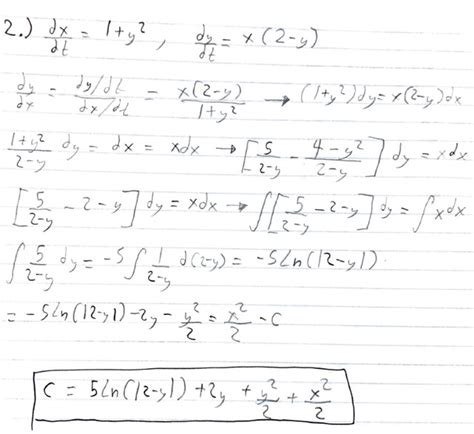 2.) dx/dt = 1+y² , dy/dt = x(2-y)
dy/dx = (dy/dt)/(dx/dt) = x(2-y)/(1+y²) → (1+y²)dy = x(2-y)dx
(1+y²)/(2-y) dy = dx = xdx → [5/(2-y) - (4-y²)/(2-y)] dy = xdx
[5/(2-y) - 2-y] dy = xdx → ∫[5/(2-y) - 2-y] dy = ∫xdx
∫ 5/(2-y) dy = -5 ∫ 1/(2-y) d(2-y) = -5ln(|2-y|)
= -5ln(|2-y|) - 2y - y²/2 = x²/2 - C
C = 5ln(|2-y|) + 2y + y²/2 + x²/2